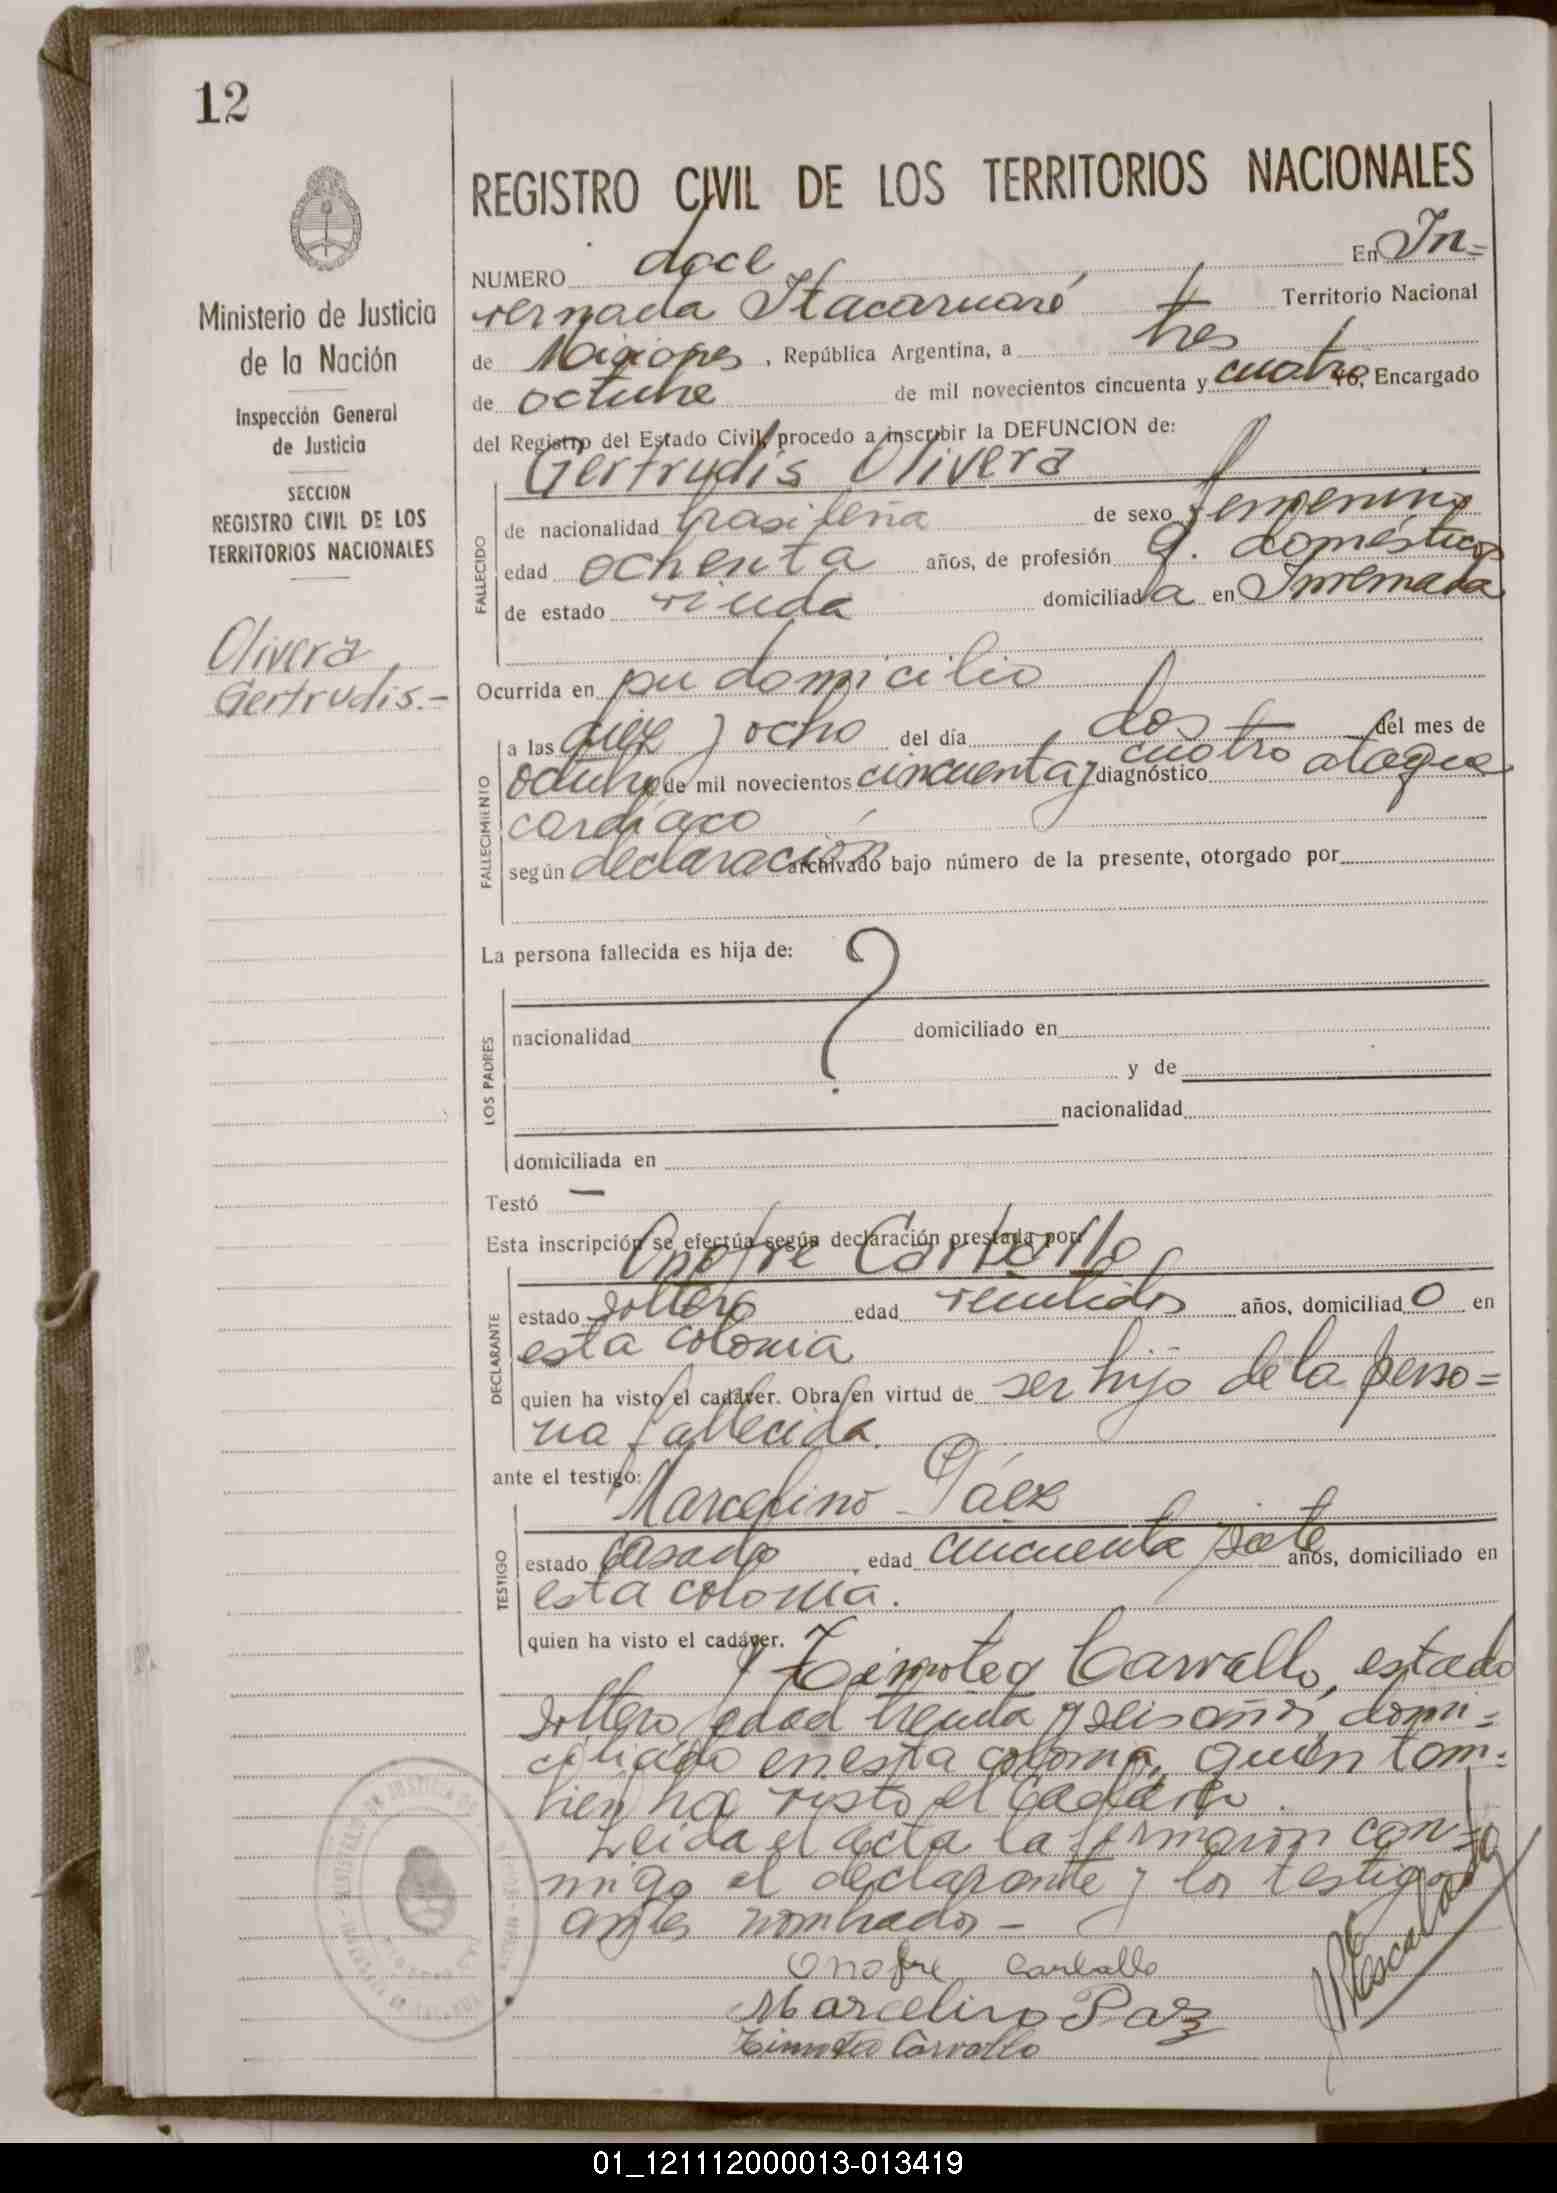 12
Ministerio de Justicia
de la Nación
Inspección General
de Justicia
SECCION
REGISTRO CIVIL DE LOS
TERRITORIOS NACIONALES
Olivera
Gertrudis.-
REGISTRO CIVIL DE LOS TERRITORIOS NACIONALES
NUMERO doce En In=
vernada Itacaruaré Territorio Nacional
de Misiones, República Argentina, a tres
de octubre de mil novecientos cincuenta y cuatro yo, Encargado
del Registro del Estado Civil, procedo a inscribir la DEFUNCION de:
Gertrudis Olivera
FALLECIDO
de nacionalidad brasileña de sexo femenino
edad ochenta años, de profesión q. domésticos
de estado viuda domiciliada en Invernada
Ocurrida en su domicilio
FALLECIMIENTO
a las diez y ocho del día dos del mes de
octubre de mil novecientos cincuenta y cuatro diagnóstico ataque
cardíaco
según declaración archivado bajo número de la presente, otorgado por
La persona fallecida es hija de: ?
LOS PADRES
nacionalidad domiciliado en
y de
nacionalidad
domiciliada en
Testó —
Esta inscripción se efectúa según declaración prestada por:
Onofre Carballo
DECLARANTE
estado soltero edad veintidos años, domiciliado en
esta colonia
quien ha visto el cadáver. Obra en virtud de ser hijo de la perso=
na fallecida.
ante el testigo:
Marcelino Páez
TESTIGO
estado casado edad cincuenta y siete años, domiciliado en
esta colonia.
quien ha visto el cadáver.
y Timoteo Carvallo, estado
soltero, edad treinta y seis años, domi=
ciliado en esta colonia, quien tam=
bien ha visto el cadáver.
Leida el acta la firmaron con=
migo el declarante y los testigos
antes nombrados -
Onofre Carballo
Marcelino Paez
Timoteo Carvallo
01_121112000013-013419